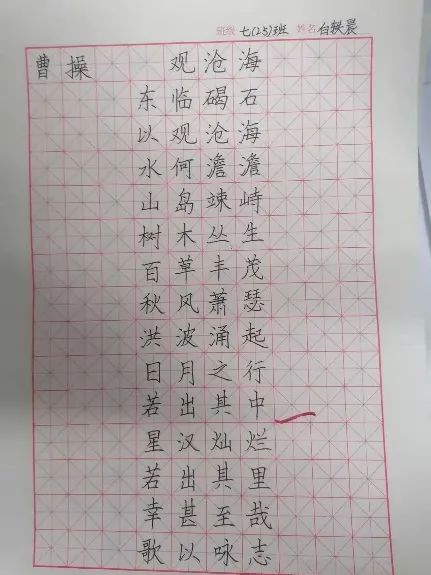 班级 七(25)班 姓名 白轶晨
曹操 观沧海
东临碣石
以观沧海
水何澹澹
山岛竦峙
树木丛生
百草丰茂
秋风萧瑟
洪波涌起
日月之行
若出其中
星汉灿烂
若出其里
幸甚至哉
歌以咏志